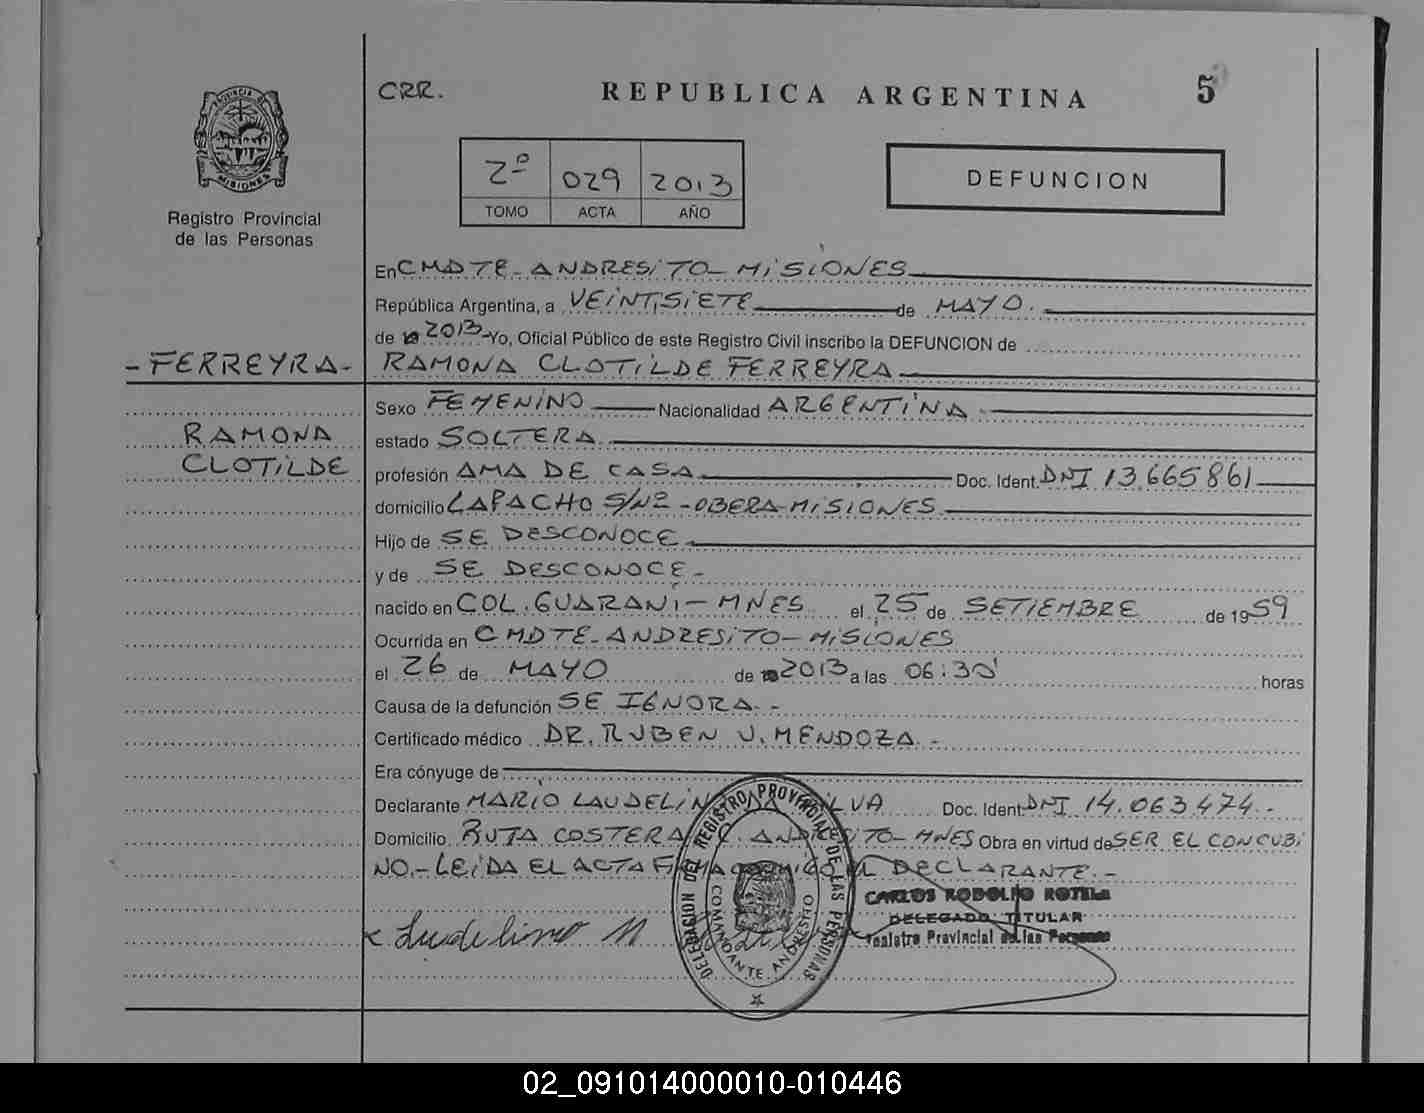 CRR.
REPUBLICA ARGENTINA
5
PROVINCIA DE
MISIONES
Registro Provincial
de las Personas
2º 029 2013
TOMO ACTA AÑO
DEFUNCION
En CMDTE-ANDRESITO-MISIONES
República Argentina, a VEINTISIETE de MAYO.
de 2013-Yo, Oficial Público de este Registro Civil inscribo la DEFUNCION de
-FERREYRA- RAMONA CLOTILDE FERREYRA
Sexo FEMENINO Nacionalidad ARGENTINA
RAMONA estado SOLTERA
CLOTILDE profesión AMA DE CASA Doc. Ident. DNI 13.665861
domicilio LAPACHO S/Nº-OBERA-MISIONES
Hijo de SE DESCONOCE
y de SE DESCONOCE-
nacido en COL.GUARANI-MNES el 25 de SETIEMBRE de 1959
Ocurrida en CMDTE-ANDRESITO-MISIONES
el 26 de MAYO de 2013 a las 06:30' horas
Causa de la defunción SE IGNORA.-
Certificado médico DR. RUBEN J. MENDOZA.-
Era cónyuge de
Declarante MARIO LAUDELINO DA SILVA Doc. Ident. DNI 14.063.474.-
Domicilio RUTA COSTERA C. ANDRESITO-MNES Obra en virtud de SER EL CONCUBI
NO.-LEIDA EL ACTA FIRMA CONMIGO EL DECLARANTE.-
DELEGACION DEL REGISTRO PROVINCIAL DE LAS PERSONAS
COMANDANTE ANDRESITO
CARLOS RODOLFO ROTELA
DELEGADO TITULAR
Registro Provincial de las Personas
Laudelino M
02_091014000010-010446